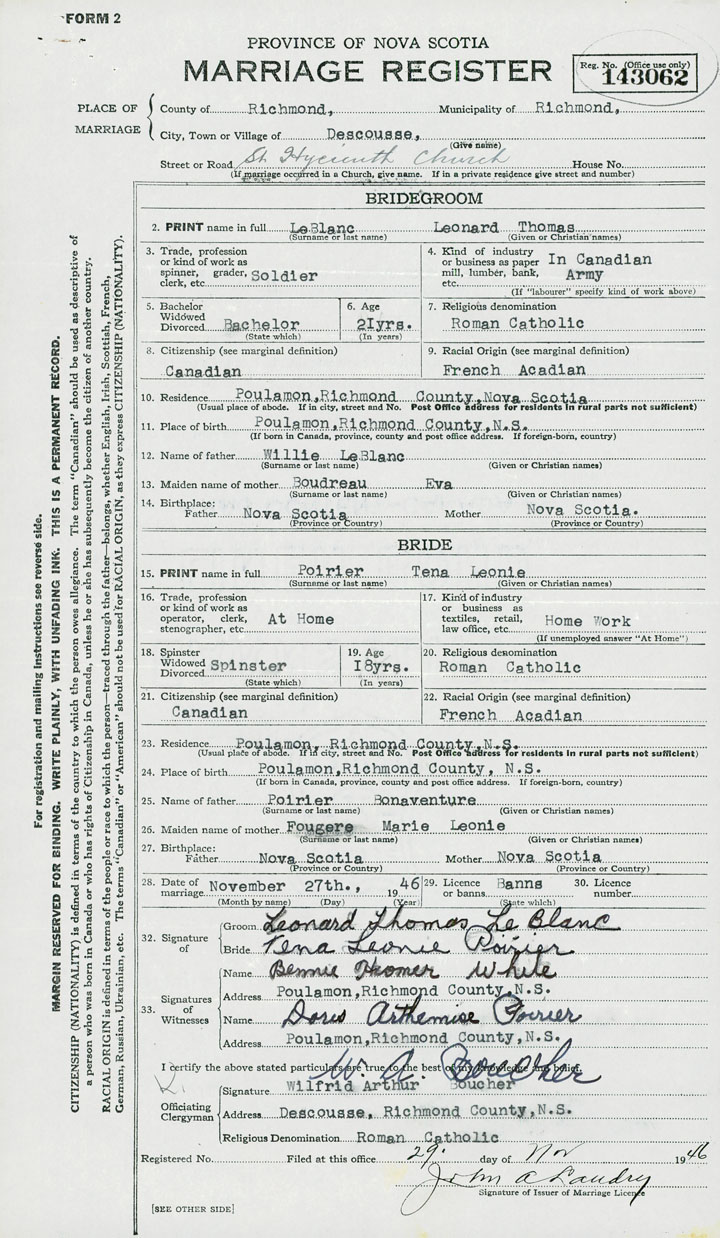 FORM 2
PROVINCE OF NOVA SCOTIA
MARRIAGE REGISTER
Reg. No. (Office use only)
143062
PLACE OF MARRIAGE
County of Richmond, Municipality of Richmond,
City, Town or Village of Descousse,
(Give name)
Street or Road St. Hycinuth Church House No.
(If marriage occurred in a Church, give name. If in a private residence give street and number)
BRIDEGROOM
2. PRINT name in full LeBlanc Leonard Thomas
(Surname or last name) (Given or Christian names)
3. Trade, profession or kind of work as spinner, grader, clerk, etc. Soldier
4. Kind of industry or business as paper mill, lumber, bank, etc. In Canadian Army
(If "labourer" specify kind of work above)
5. Bachelor Widowed Divorced Bachelor
(State which)
6. Age 21yrs.
(In years)
7. Religious denomination
Roman Catholic
8. Citizenship (see marginal definition)
Canadian
9. Racial Origin (see marginal definition)
French Acadian
10. Residence Poulamon,Richmond County,Nova Scotia
(Usual place of abode. If in city, street and No. Post Office address for residents in rural parts not sufficient)
11. Place of birth Poulamon,Richmond County,N.S.
(If born in Canada, province, county and post office address. If foreign-born, country)
12. Name of father Willie LeBlanc
(Surname or last name) (Given or Christian names)
13. Maiden name of mother Boudreau Eva
(Surname or last name) (Given or Christian names)
14. Birthplace:
Father Nova Scotia Mother Nova Scotia.
(Province or Country) (Province or Country)
BRIDE
15. PRINT name in full Poirier Tena Leonie
(Surname or last name) (Given or Christian names)
16. Trade, profession or kind of work as operator, clerk, stenographer, etc. At Home
17. Kind of industry or business as textiles, retail, law office, etc. Home Work
(If unemployed answer "At Home")
18. Spinster Widowed Divorced Spinster
(State which)
19. Age 18yrs.
(In years)
20. Religious denomination
Roman Catholic
21. Citizenship (see marginal definition)
Canadian
22. Racial Origin (see marginal definition)
French Acadian
23. Residence Poulamon, Richmond County,N.S.
(Usual place of abode. If in city, street and No. Post Office address for residents in rural parts not sufficient)
24. Place of birth Poulamon,Richmond County, N.S.
(If born in Canada, province, county and post office address. If foreign-born, country)
25. Name of father Poirier Bonaventure
(Surname or last name) (Given or Christian names)
26. Maiden name of mother Fougere Marie Leonie
(Surname or last name) (Given or Christian names)
27. Birthplace:
Father Nova Scotia Mother Nova Scotia
(Province or Country) (Province or Country)
28. Date of marriage November 27th., 1946
(Month by name) (Day) (Year)
29. Licence or banns Banns
(State which)
30. Licence number
32. Signature of
Groom Leonard Thomas Le Blanc
Bride Tena Leonie Poirier
33. Signatures of Witnesses
Name Bennie Homer White
Address Poulamon,Richmond County,N.S.
Name Doris Arthemise Poirier
Address Poulamon,Richmond County,N.S.
I certify the above stated particulars are true to the best of my knowledge and belief.
W. A. Boucher
Officiating Clergyman
Signature Wilfrid Arthur Boucher
Address Descousse, Richmond County,N.S.
Religious Denomination Roman Catholic
Registered No. Filed at this office 29. day of Nov 1946
John A Landry
Signature of Issuer of Marriage Licence
[SEE OTHER SIDE]
For registration and mailing instructions see reverse side.
MARGIN RESERVED FOR BINDING. WRITE PLAINLY, WITH UNFADING INK. THIS IS A PERMANENT RECORD.
CITIZENSHIP (NATIONALITY) is defined in terms of the country to which the person owes allegiance. The term "Canadian" should be used as descriptive of
a person who was born in Canada or who has rights of Citizenship in Canada, unless he or she has subsequently become the citizen of another country.
RACIAL ORIGIN is defined in terms of the people or race to which the person—traced through the father—belongs, whether English, Irish, Scottish, French,
German, Russian, Ukrainian, etc. The terms "Canadian" or "American" should not be used for RACIAL ORIGIN, as they express CITIZENSHIP (NATIONALITY).